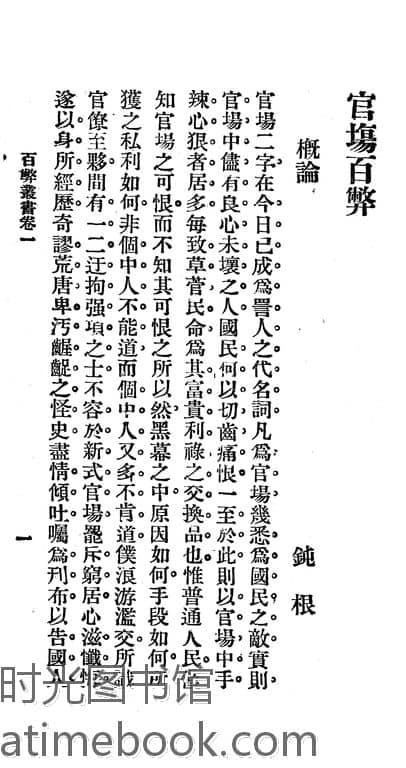 官塲百弊
概論
鈍根
官場二字在今日已成爲詈人之代名詞凡爲官場幾悉爲國民之敵實則
官場中儘有良心未壞之人國民何以切齒痛恨一至於此則以官場中手
辣心狠者居多每致草菅民命爲其富貴利祿之交換品也惟普通人民
知官場之可恨而不知其可恨之所以然黑幕之中原因如何手段如何所
獲之私利如何非個中人不能道而個中人又多不肯道僕浪游濫交所識
官僚至夥間有一二迂拘强項之士不容於新式官場罷斥窮居心滋懺悔
遂以身所經歷奇謬荒唐卑汚齷齪之怪史盡情傾吐囑爲刋布以告國人
百弊叢書卷一
一
时光图书馆
atimebook.com